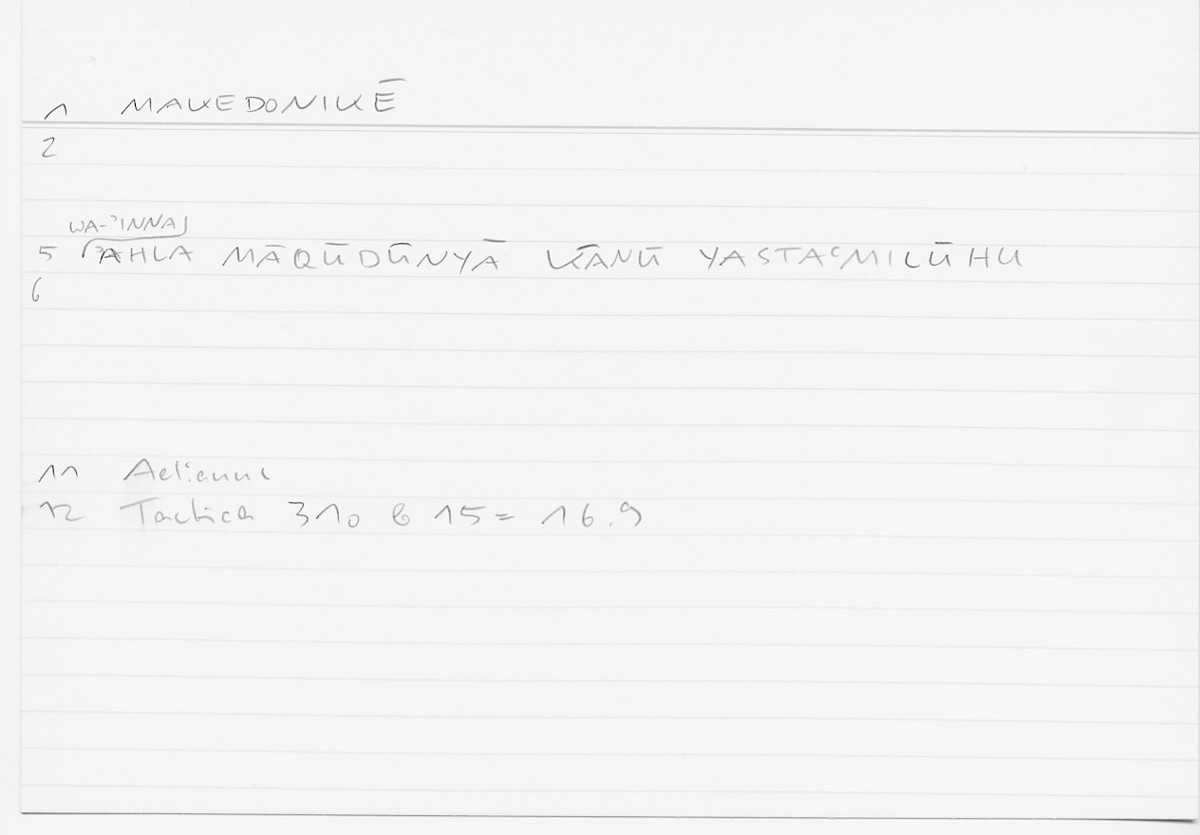 1 MAKEDONIKĒ
2
WA-ʾINNA
5 ʾAHLA MĀQŪDŪNYĀ KĀNŪ YASTAʿMILŪHU
6
11 Aelianus
12 Tactica 310 b 15 = 16.9